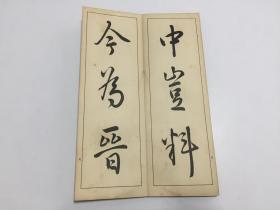 中豈料
今為晉